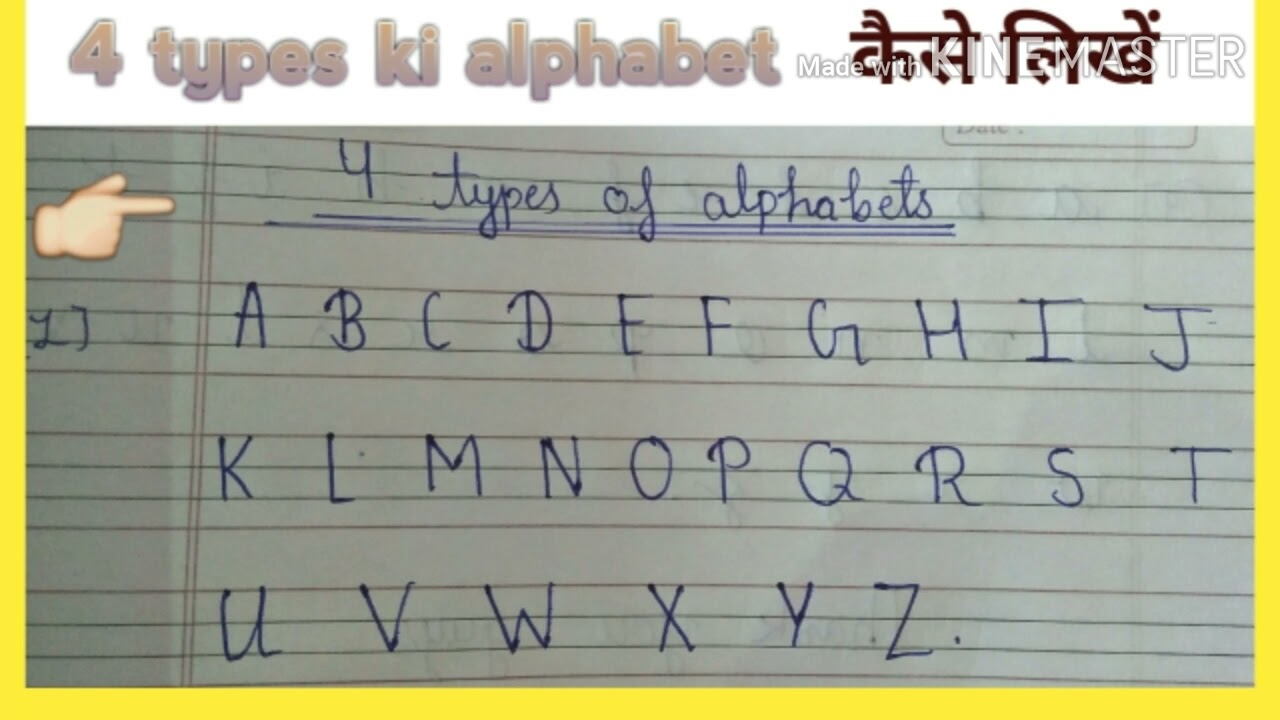 4 types ki alphabet कैसे लिखें
Made with KINEMASTER
Date :
4 types of alphabets
1] A B C D E F G H I J
K L M N O P Q R S T
U V W X Y Z.